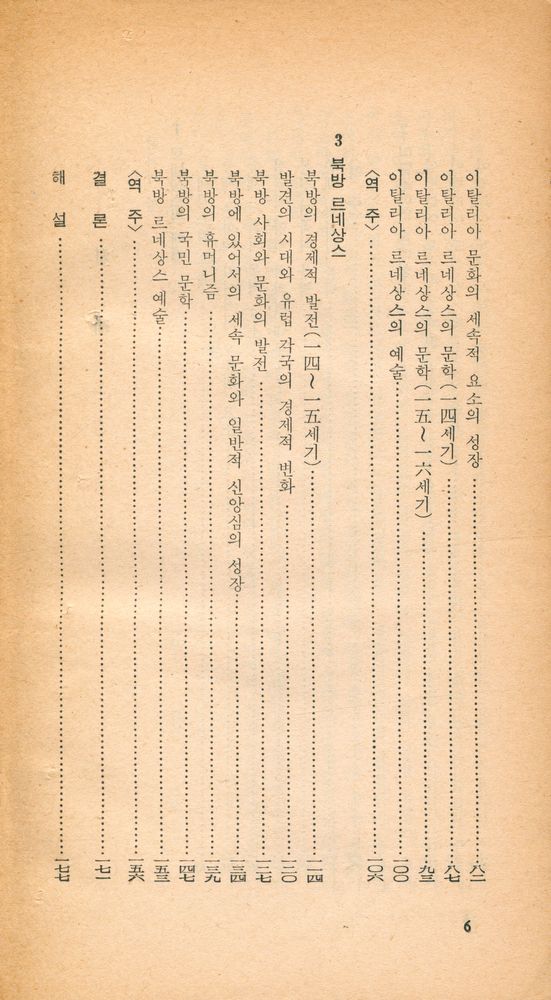 이탈리아 문화의 세속적 요소의 성장……………………八二
이탈리아 르네상스의 문학(一四세기)……………………八七
이탈리아 르네상스의 문학(一五~一六세기)……………………九三
이탈리아 르네상스의 예술……………………一〇〇
〈역 주〉……………………一〇六
3 북방 르네상스
북방의 경제적 발전(一四~一五세기)……………………一一四
발견의 시대와 유럽 각국의 경제적 변화……………………一二〇
북방 사회와 문화의 발전……………………一二七
북방에 있어서의 세속 문화와 일반적 신앙심의 성장……………………一三四
북방의 휴머니즘……………………一三九
북방의 국민 문학……………………一四七
북방 르네상스 예술……………………一五三
〈역 주〉……………………一五六
결 론……………………一七一
해 설……………………一七七
6